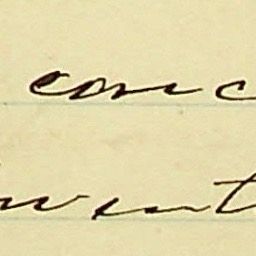 conc
went